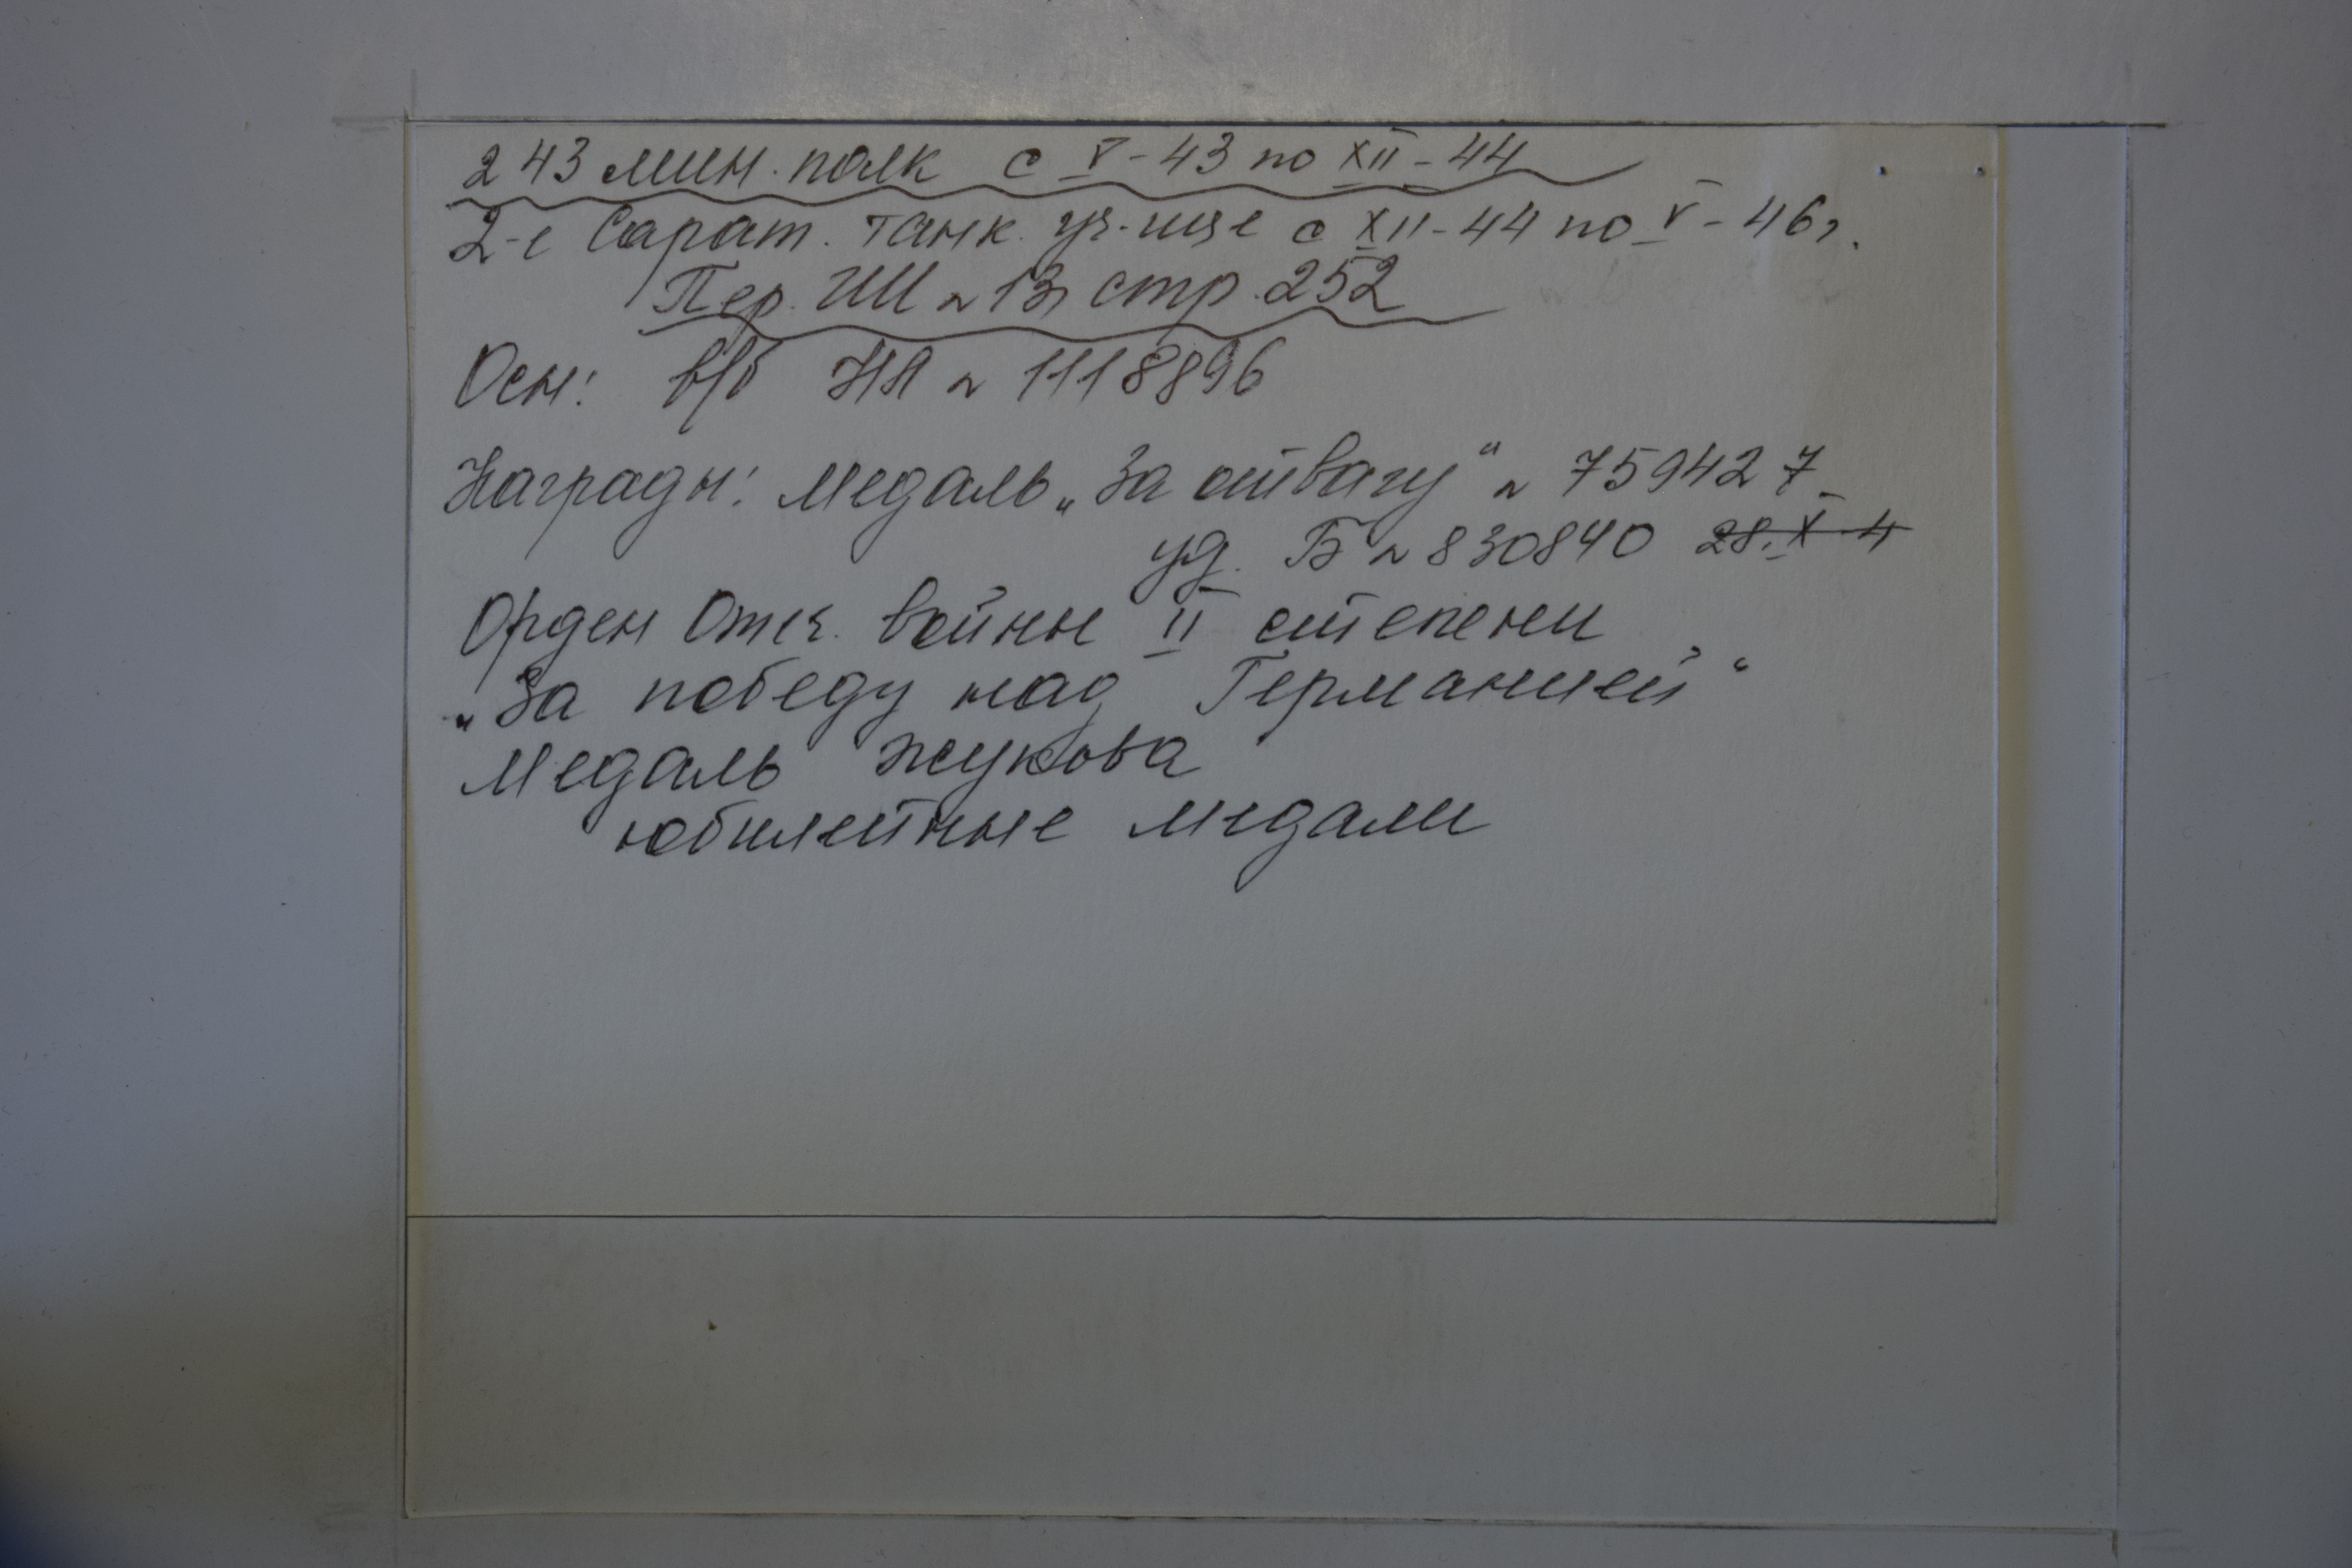 243 мин. полк с V-43 по XII-44
2-е Сарат. танк. уч-ще с XII-44 по V-46г.
Пер. ГШ № 13, стр. 252
Осн: в/б НЛ № 1118896
Награды: Медаль „За отвагу“ № 759427
уд. Б № 830840 28.X-4
Орден Отеч. войны II степени
„За победу над Германией“
Медаль Жукова
юбилейные медали